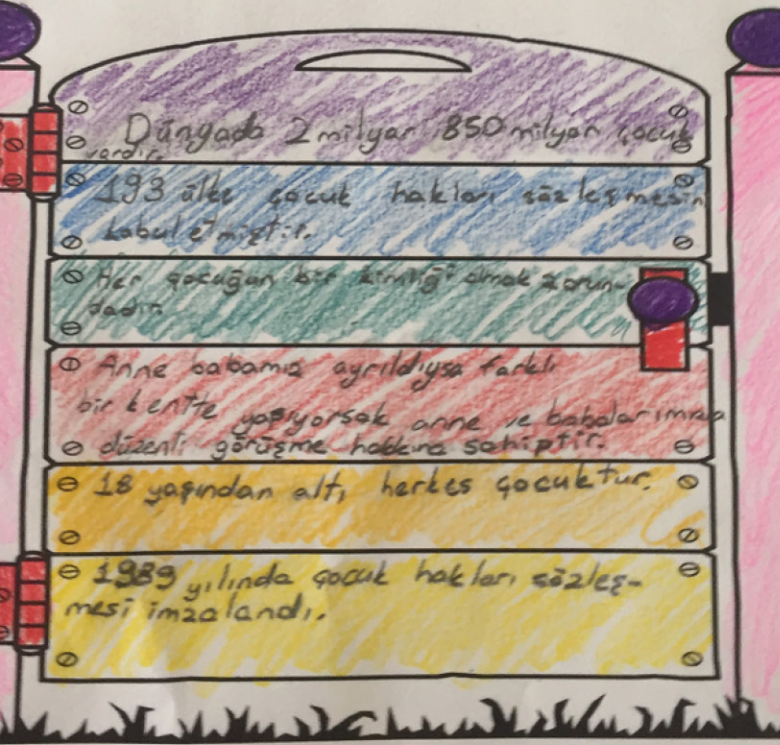 Dünyada 2 milyar 850 milyon çocuk
vardır.
193 ülke çocuk hakları sözleşmesin
kabul etmiştir.
Her çocuğun bir kimliği olmak zorun-
dadır.
Anne babamız ayrıldıysa farklı
bir kentte yaşıyorsak anne ve babalarımıza
düzenli görüşme hakkına sahiptir.
18 yaşından altı herkes çocuktur.
1989 yılında çocuk hakları sözleş-
mesi imzalandı.